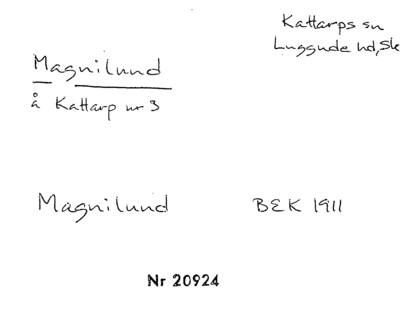 Kattarps sn
Luggude hd, Sk
Magnilund
å Kattarp nr 3
Magnilund BEK 1911
Nr 20924